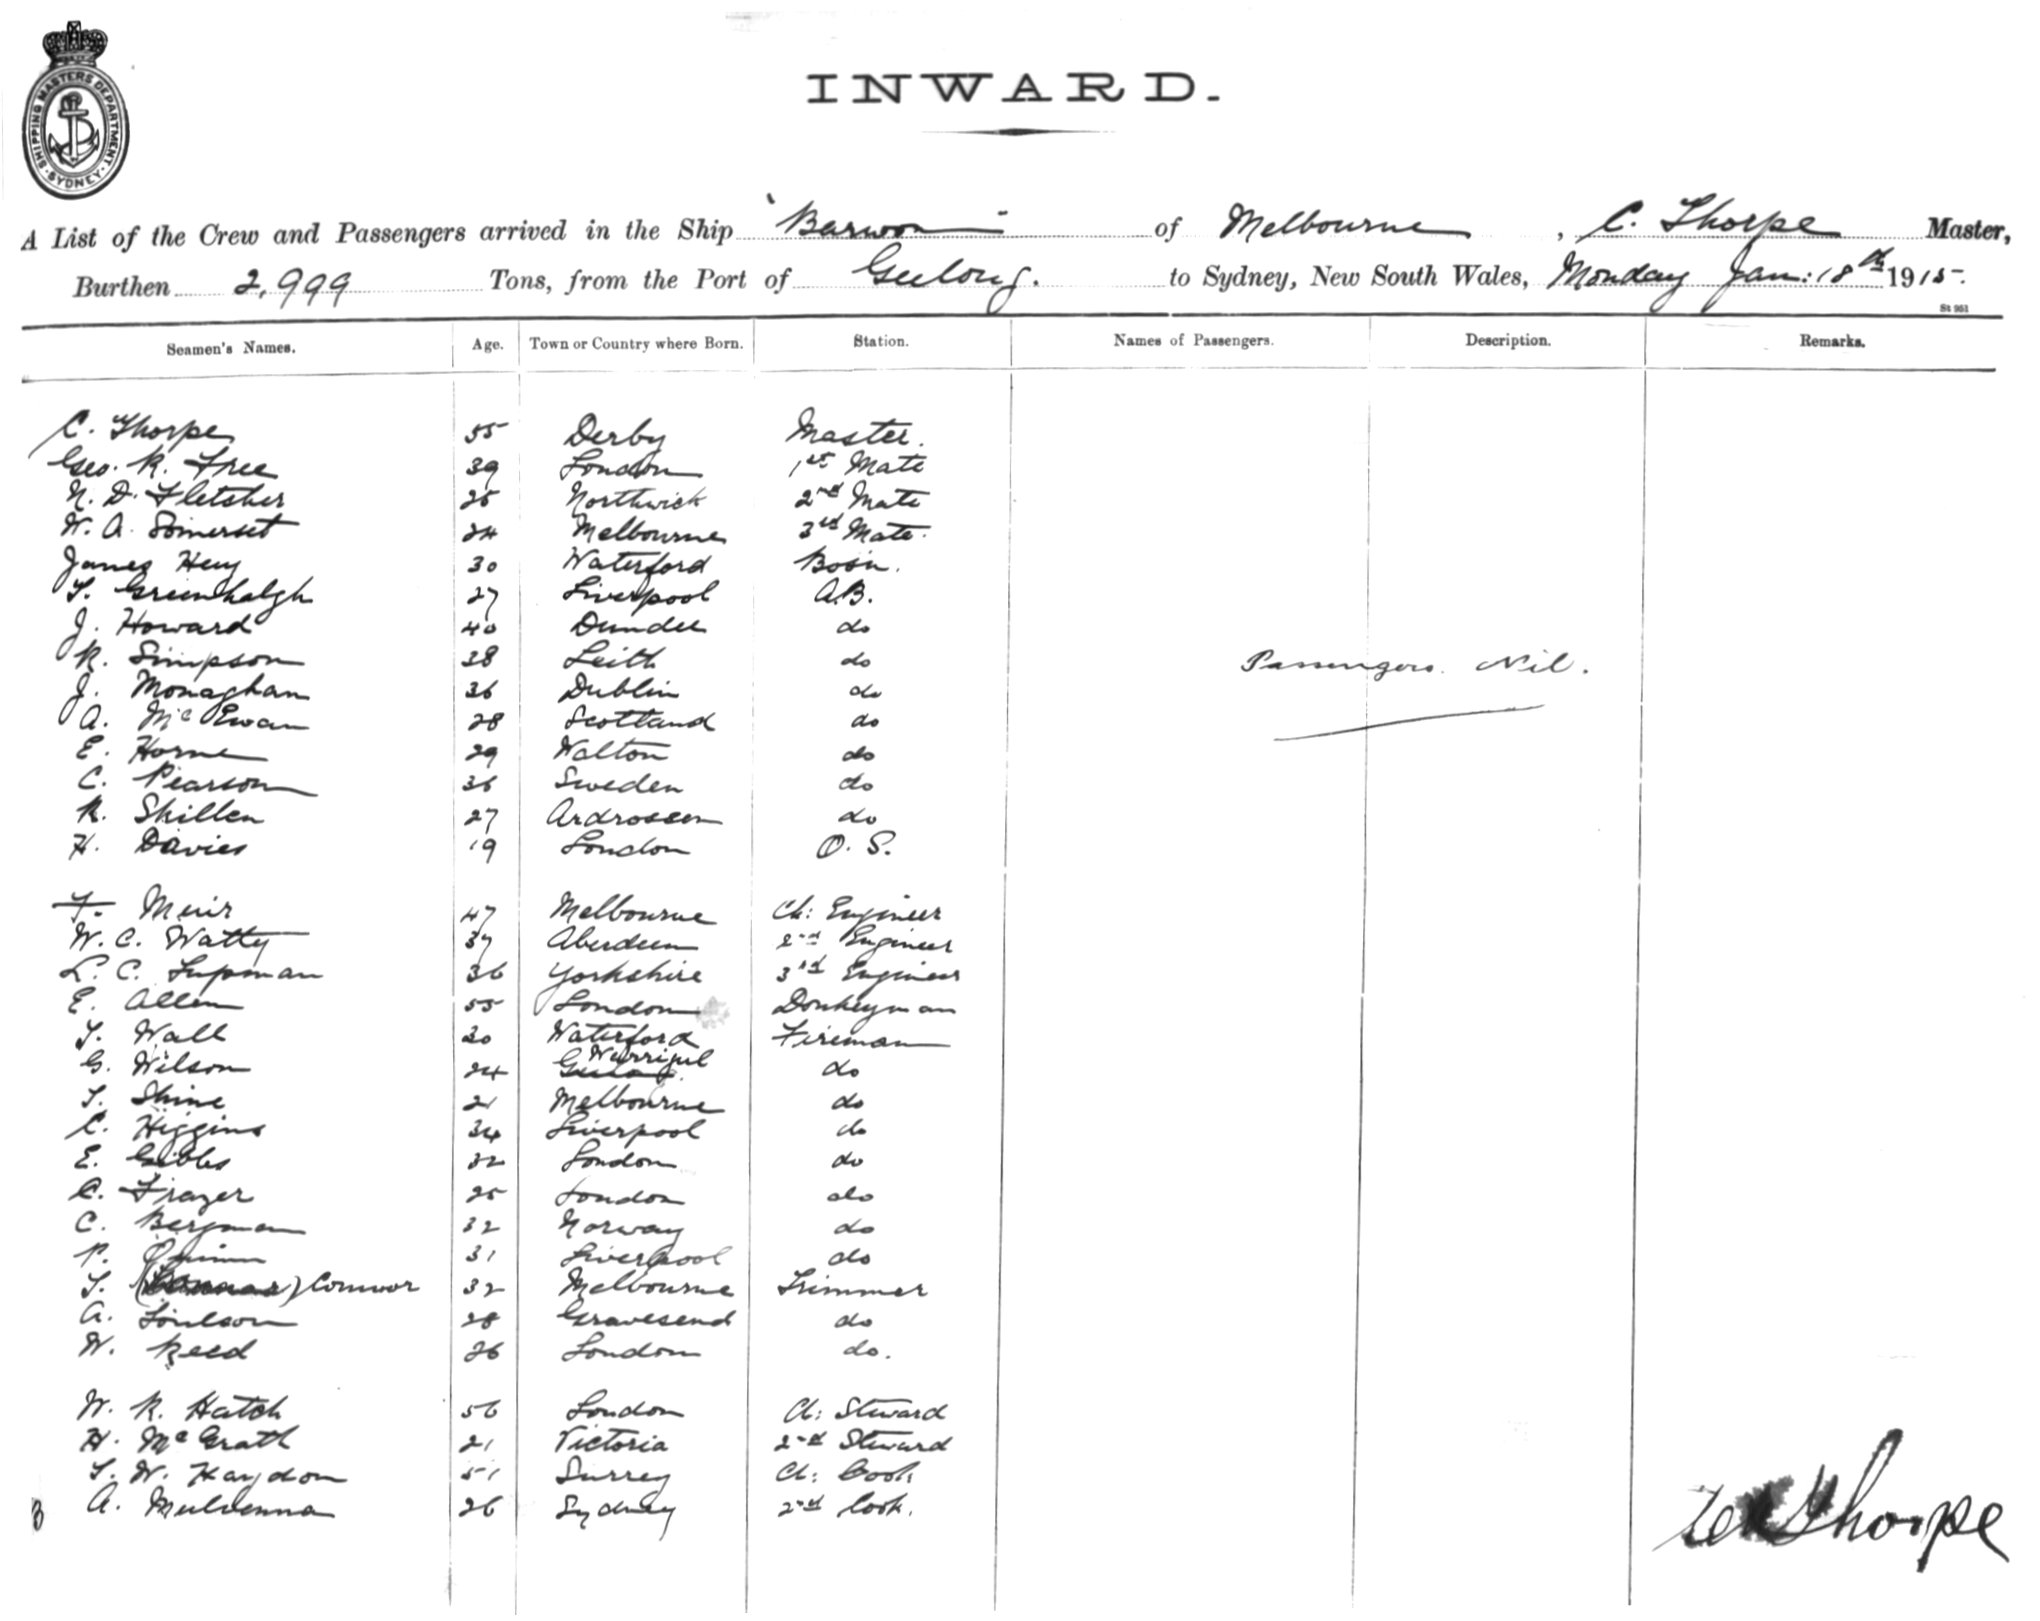 SHIPPING MASTERS DEPARTMENT · SYDNEY ·
INWARD.
A List of the Crew and Passengers arrived in the Ship "Barwon" of Melbourne, C. Thorpe Master,
Burthen 2,999 Tons, from the Port of Geelong. to Sydney, New South Wales, Monday Jan: 18th 1915.
St 951
Seamen's Names. Age. Town or Country where Born. Station. Names of Passengers. Description. Remarks.
C. Thorpe 55 Derby Master.
Geo. R. Free 39 London 1st Mate
N. D. Fletcher 25 Northwich 2nd Mate
W. A. Somerset 24 Melbourne 3rd Mate.
James 30 Waterford Bosn.
T. Greenhalgh 27 Liverpool A.B.
J. Howard 40 Dundee do
R. Simpson 38 Leith do
Passengers. Nil.
J. Monaghan 36 Dublin do
A. McEwan 28 Scotland do
E. Horne 29 Walton do
C. Pearson 36 Sweden do
R. Skillen 27 Ardrossen do
H. Davies 19 London O. S.
T. Muir 47 Melbourne Ch: Engineer
W. C. Watty 37 Aberdeen 2nd Engineer
L. C. Lupman 36 Yorkshire 3rd Engineer
E. Allen 55 London Donkeyman
T. Wall 30 Waterford Fireman
G. Wilson 24 Warrigul do
T. Shine 21 Melbourne do
C. Higgins 34 Liverpool do
E. Gibbs 32 London do
C. Frazer 25 London do
C. Bergman 32 Norway do
P. Quinn 31 Liverpool do
T. Connor 32 Melbourne Trimmer
A. Toulson 28 Gravesend do
W. Reed 26 London do.
W. R. Hatch 56 London Ch: Steward
H. McGrath 21 Victoria 2nd Steward
T. W. Haydon 51 Surrey Ch: Cook
A. Mulvenna 26 Sydney 2nd Cook.
Thorpe